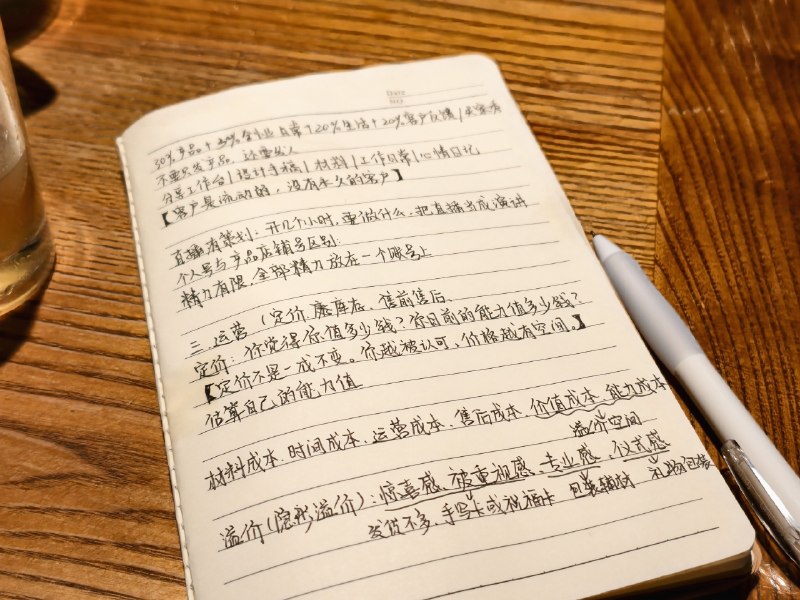 Date
NO.
30%产品+30%专业日常+20%生活+20%客户反馈/买家秀
不要只发产品,还要发人
分享工作台|设计手稿|材料|工作日常|心情日记
【客户是流动的,没有永久的客户】
直播有策划:开几个小时,要做什么,把直播当成演讲
个人号与产品店铺号区别:
精力有限,全部精力放在一个账号上
三.运营(定价、库存、售前售后
定价:你觉得你值多少钱?你目前的能力值多少钱?
【定价不是一成不变。你越被认可,价格越有空间。】
估算自己的能力值
材料成本、时间成本、运营成本、售后成本、价值成本、能力成本
溢价空间
溢价(隐形溢价):惊喜感、被重视感、专业感、仪式感
发货不多,手写卡或祝福卡 包装辅材 礼物包装